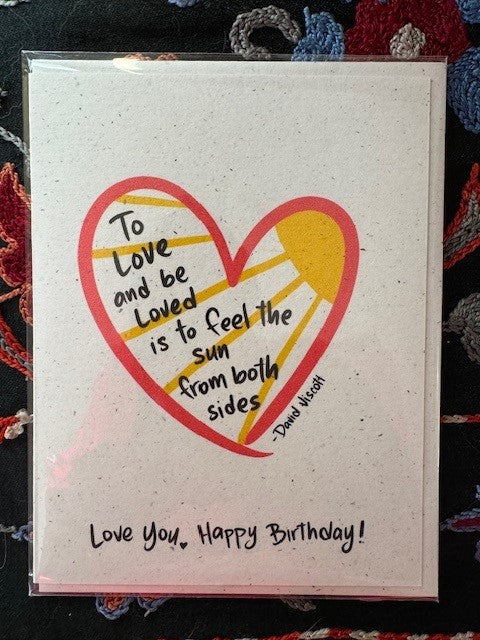 To
Love
and be
Loved
is to feel the
sun
from both
sides
-David Viscott
Love You. Happy Birthday!